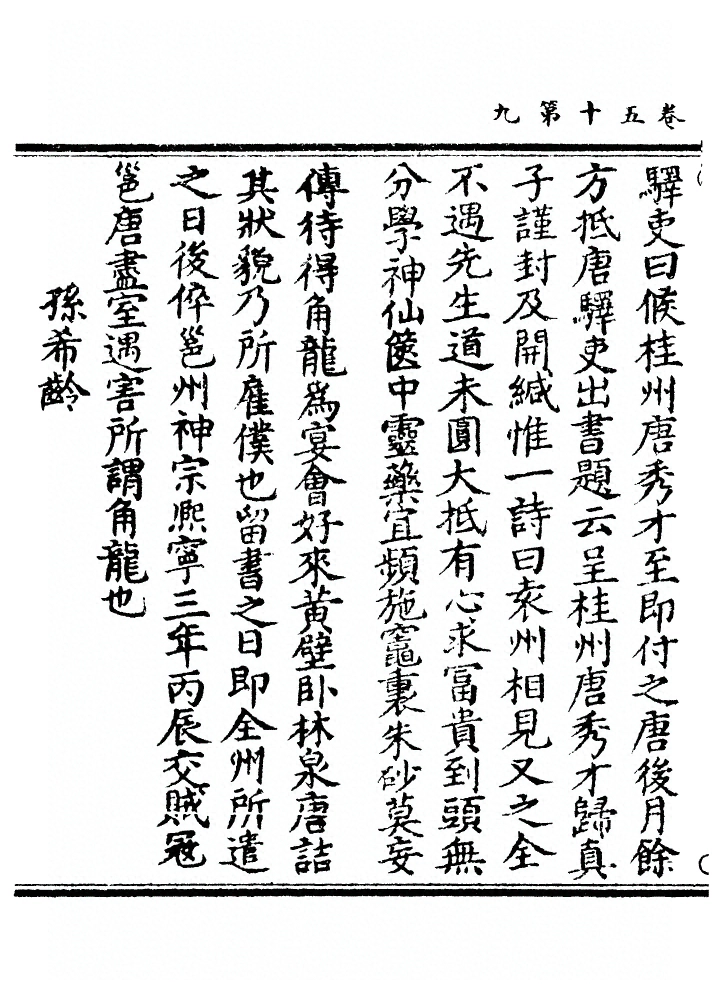 卷五十第九
驛吏曰候桂州唐秀才至即付之唐後月餘
方抵唐驛吏出書題云呈桂州唐秀才歸真
子謹封及開緘惟一詩曰袁州相見又之全
不遇先生道未圓大抵有心求富貴到頭無
分學神仙篋中靈藥宜頻施竈裏朱砂莫妄
傳待得角龍為宴會好來黃壁卧林泉唐詰
其狀貌乃所雇僕也留書之日即全州所遣
之日後倅邕州神宗熈寧三年丙辰交賊冦
邕唐盡室遇害所謂角龍也
孫希齡